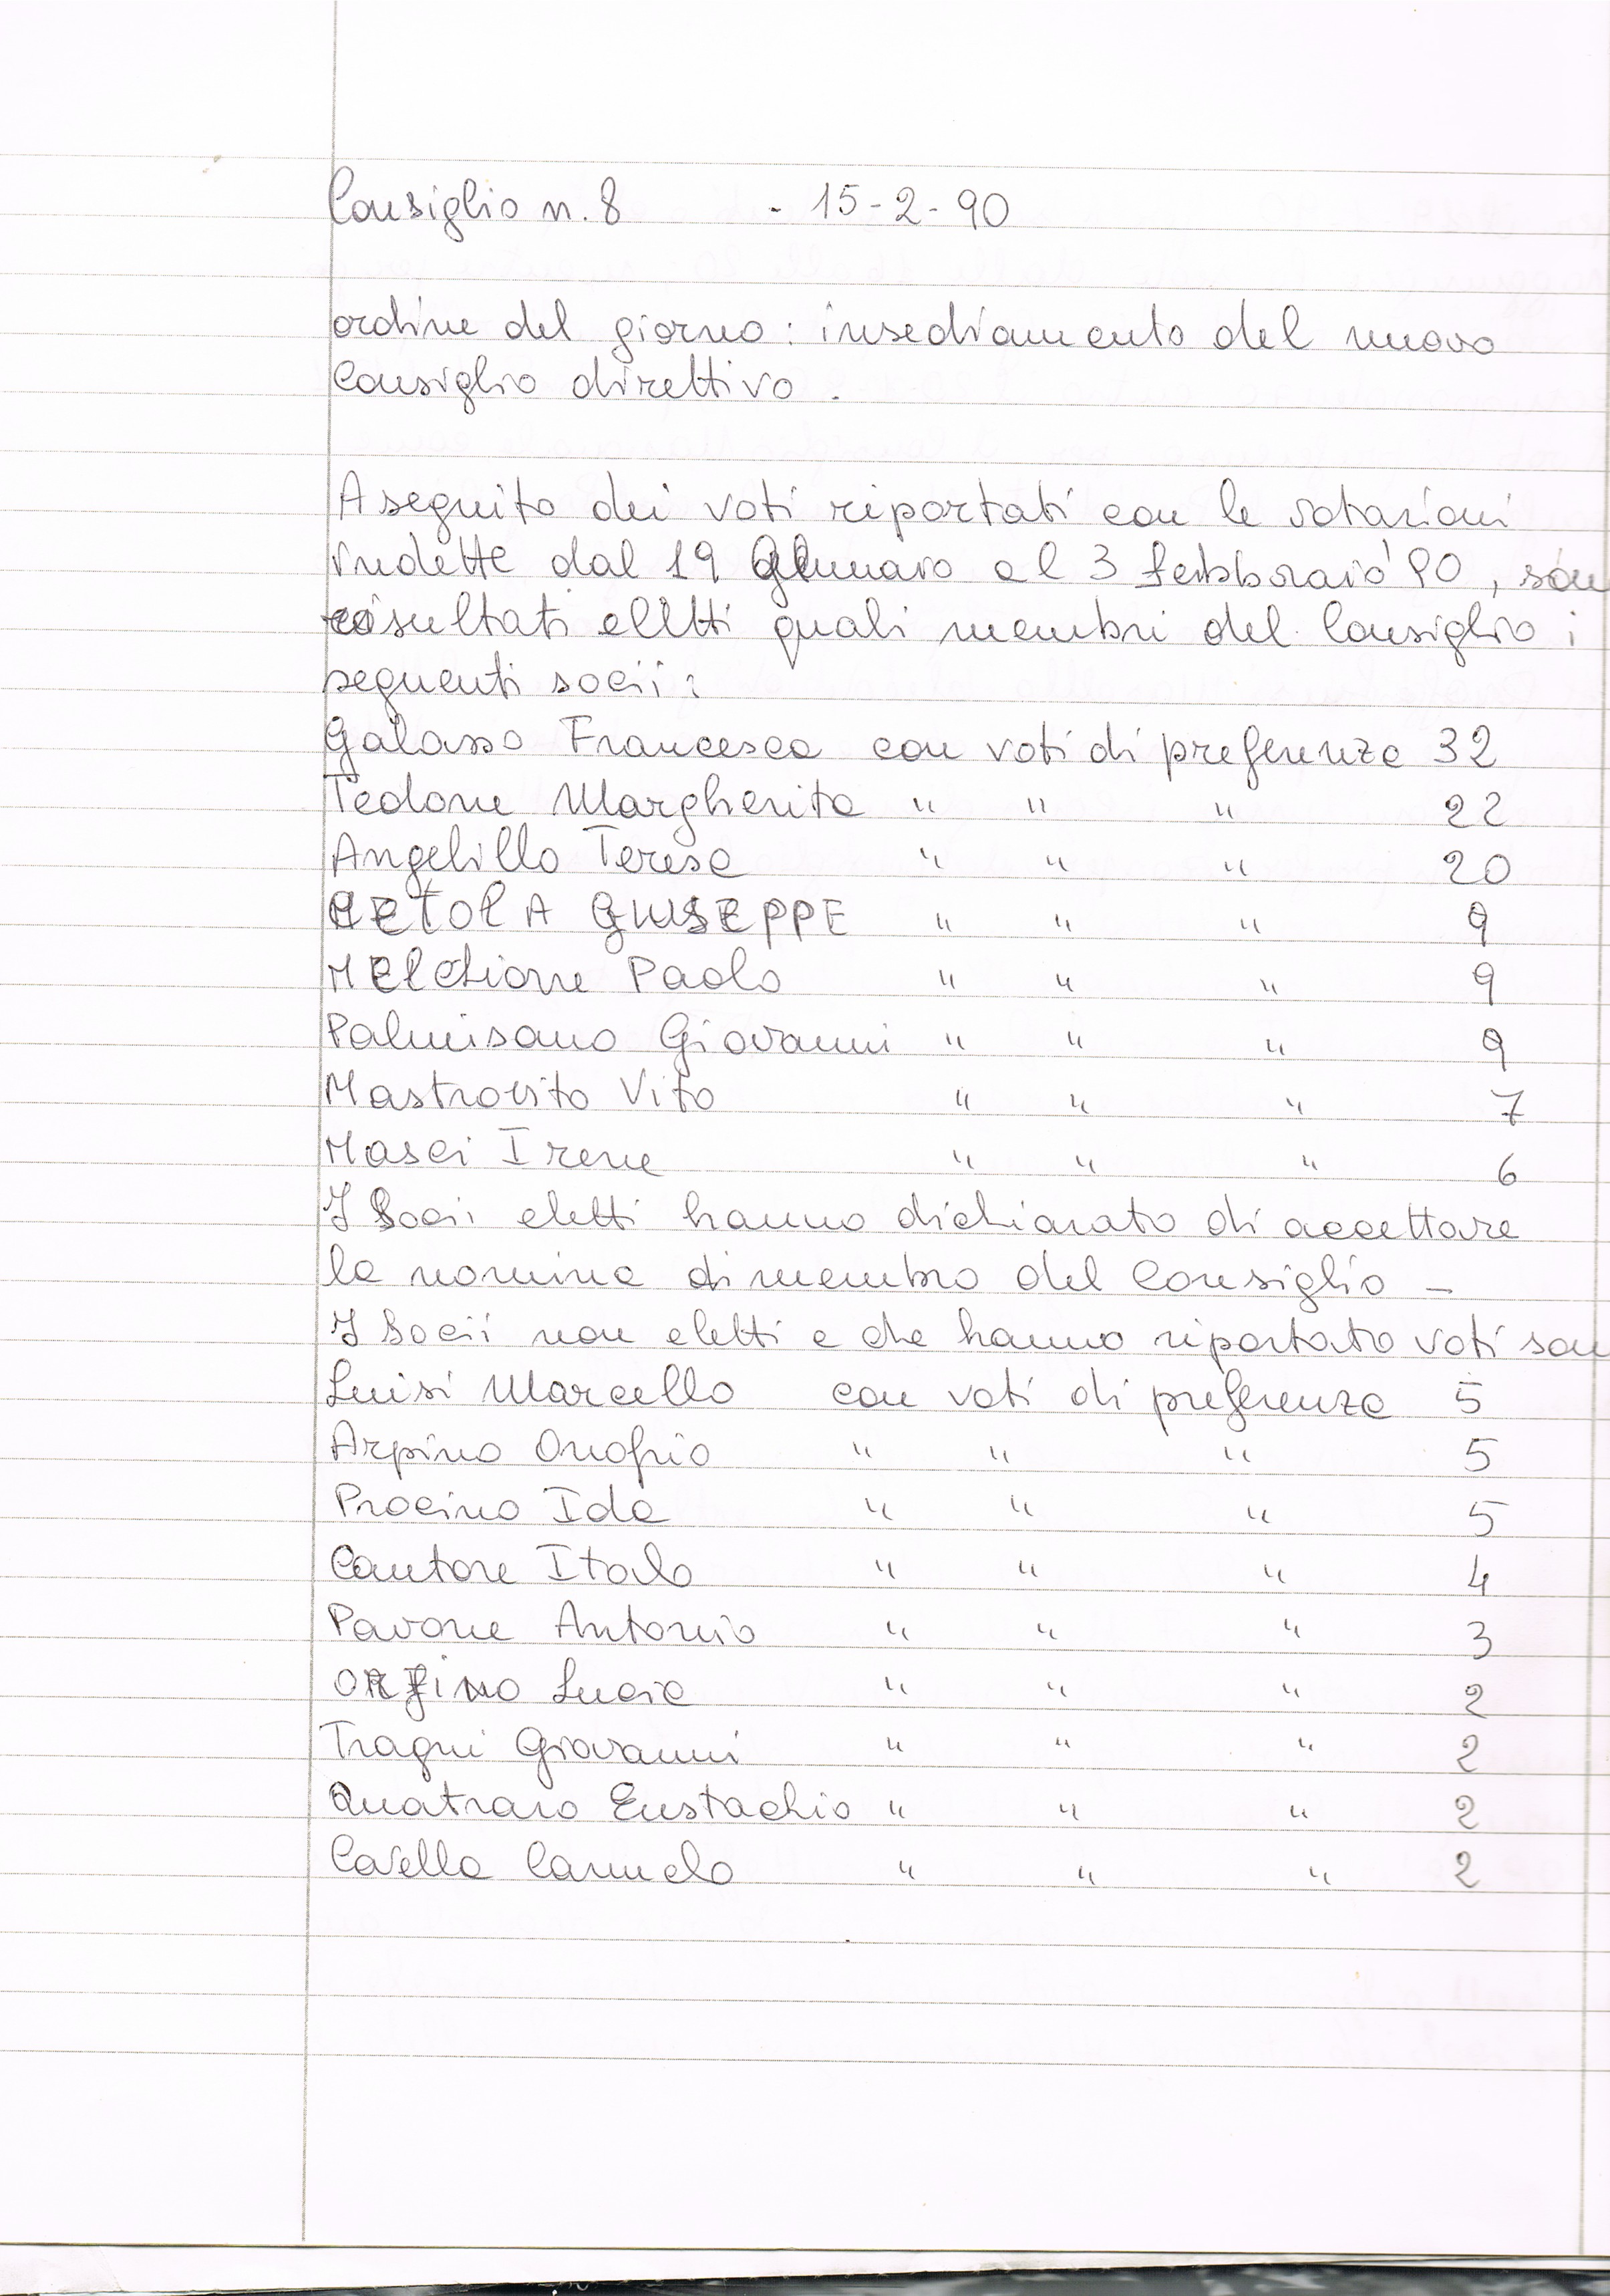 Consiglio n. 8 - 15-2-90
ordine del giorno: insediamento del nuovo
Consiglio direttivo.
A seguito dei voti riportati con le votazioni
indette dal 19 Gennaio al 3 febbraio '90, son
risultati eletti quali membri del Consiglio i
seguenti socii:
Galasso Francesca con voti di preferenza 32
Tedone Margherita " " " 22
Angelillo Teresa " " " 20
GIUSEPPE " " " 9
MElchione Paolo " " " 9
Palmisano Giovanni " " " 9
Mastrovito Vito " " " 7
Masci Irene " " " 6
I Soci eletti hanno dichiarato di accettare
la nomina di membro del Consiglio -
I Socii non eletti e che hanno riportato voti son
Luisi Marcello con voti di preferenza 5
Arpino Onofrio " " " 5
Procino Ida " " " 5
Cantore Italo " " " 4
Pavone Antonio " " " 3
ORFINO Lucia " " " 2
Tragni Giovanni " " " 2
Quatraro Eustachio " " " 2
Cavella Carmelo " " " 2